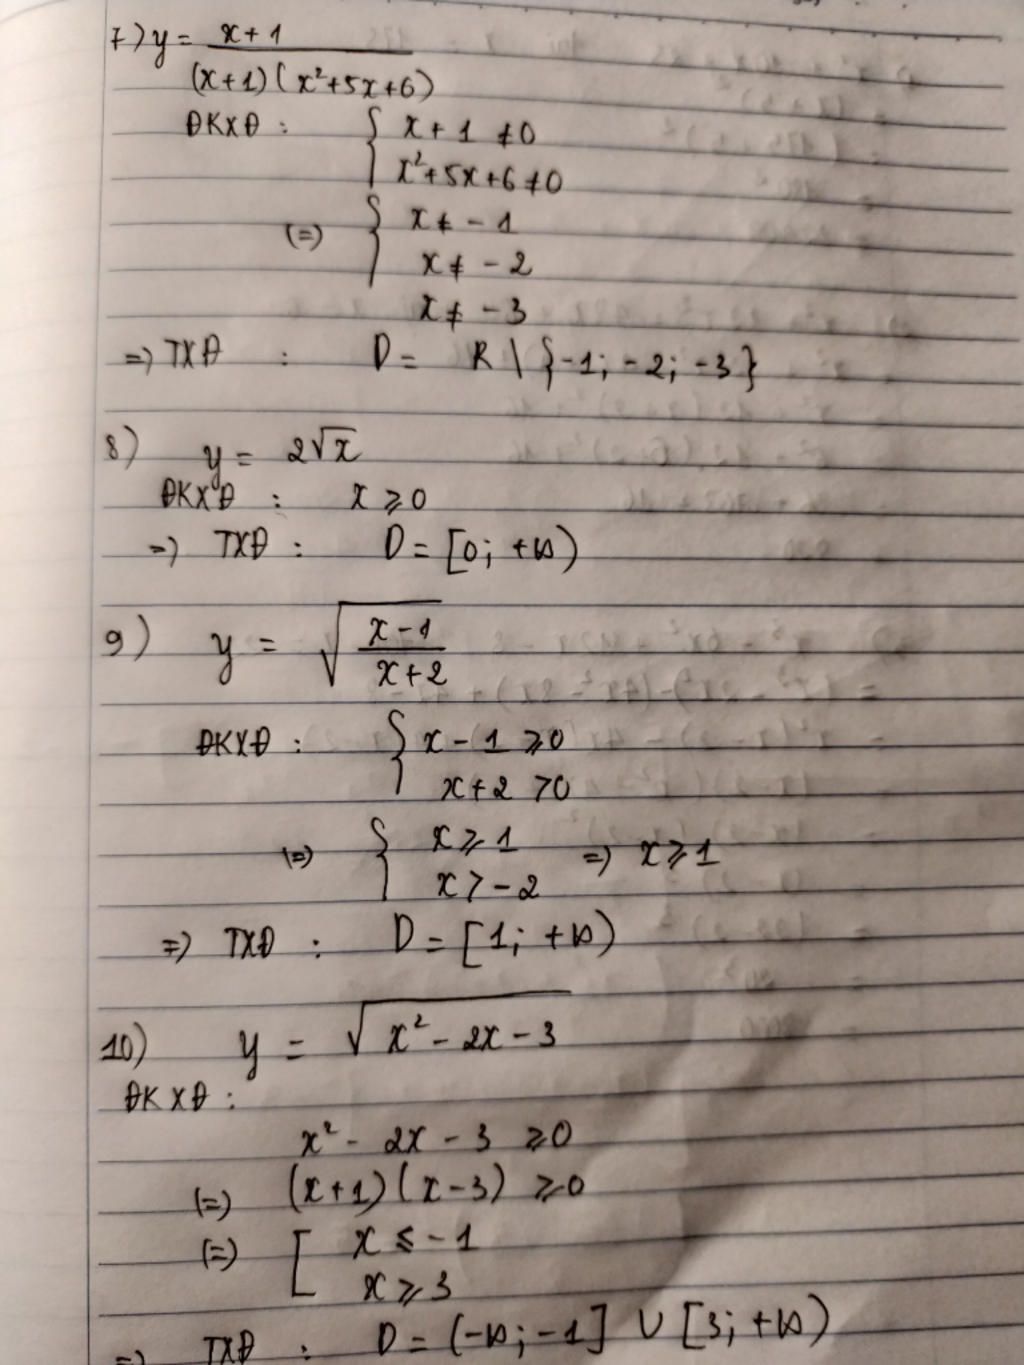 7) y = x+1
(x+1)(x²+5x+6)
ĐKXĐ : { x+1 ≠0
x²+5x+6 ≠0
(=) { x ≠ -1
x ≠ -2
x ≠ -3
=) TXĐ : D = R \ {-1; -2; -3}
8) y = 2√x
ĐKXĐ : x ⩾ 0
=) TXĐ : D = [0; +∞)
9) y = √ x-1
x+2
ĐKXĐ : { x - 1 ⩾0
x+2 >0
(=) { x ⩾ 1 =) x ⩾ 1
x > -2
=) TXĐ : D = [1; +∞)
10) y = √ x² - 2x - 3
ĐKXĐ :
x² - 2x - 3 ⩾0
(=) (x+1)(x-3) ⩾0
(=) [ x ⩽ -1
x ⩾ 3
=) TXĐ : D = (-∞; -1] ∪ [3; +∞)